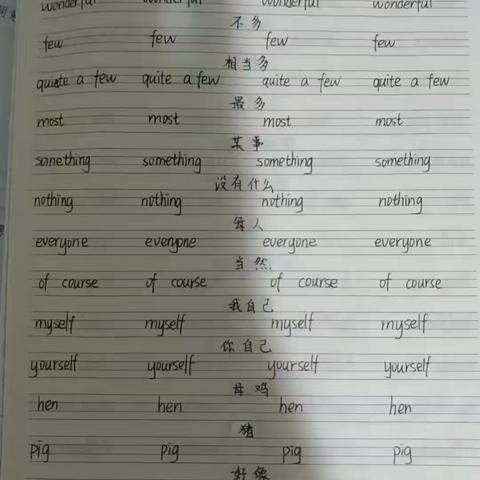 wonderful wonderful wonderful wonderful
不多
few few few few
相当多
quite a few quite a few quite a few quite a few
最多
most most most most
某事
something something something something
没有什么
nothing nothing nothing nothing
每人
everyone everyone everyone everyone
当然
of course of course of course of course
我自己
myself myself myself myself
你自己
yourself yourself yourself yourself
母鸡
hen hen hen hen
猪
pig pig pig pig
好像